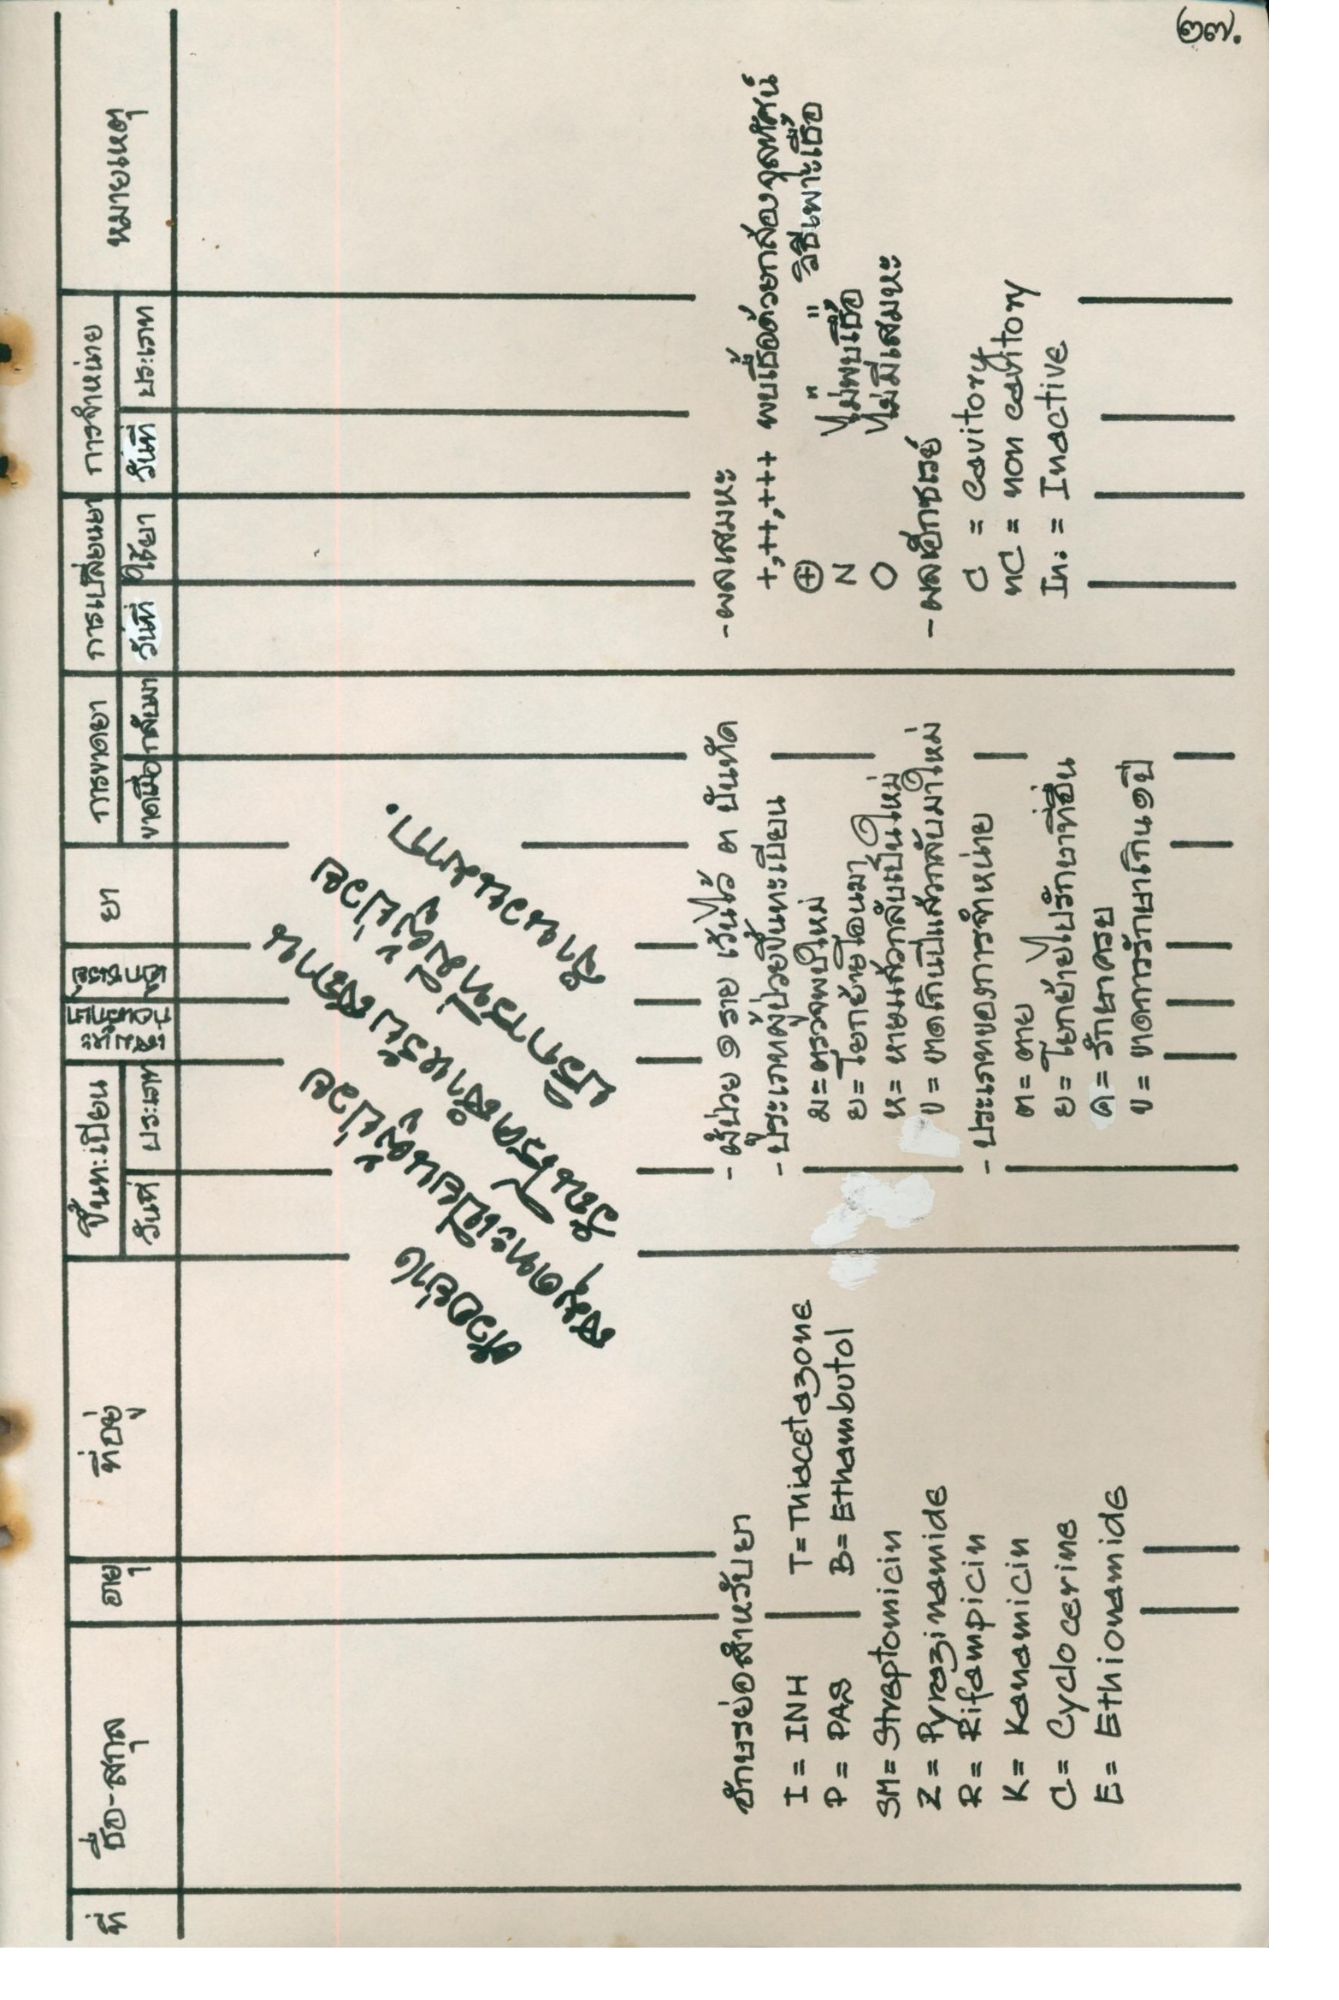 ๓๗.
ที่ ชื่อ-สกุล อายุ ที่อยู่ ขึ้นทะเบียน เสมหะก่อนรักษา เอ็กซเรย์ ยา การขาดยา การเปลี่ยนยา การจำหน่าย หมายเหตุ
วันที่ ประเภท ขาดเมื่อ กลับมา วันที่ ใช้ยา วันที่ ประเภท
ตัวอย่าง
สมุดทะเบียนผู้ป่วย
วัณโรคสำหรับสถาน
บริการที่มีผู้ป่วย
จำนวนมาก.
อักษรย่อสำหรับยา
I = INH T = Thiacetazone
P = PAS B = Ethambutol
SM = Streptomicin
Z = Pyrazinamide
R = Rifampicin
K = Kanamicin
C = Cyclocerine
E = Ethionamide
- ผู้ป่วย ๑ ราย เว้นไว้ ๓ บันทัด
- ประเภทผู้ป่วยขึ้นทะเบียน
ม = ตรวจพบใหม่
ย = โยกย้ายโอนมา
ห = หายแล้วกลับเป็นใหม่
ข = ขาดเกินปีแล้วกลับมาใหม่
- ประเภทของการจำหน่าย
ต = ตาย
ย = โยกย้ายไปรักษาที่อื่น
ค = รักษาครบ
ข = ขาดการรักษาเกิน ๑ ปี
- ผลเสมหะ
+,++,+++ พบเชื้อด้วยกล้องจุลทัศน์
⊕ " " วิธีเพาะเชื้อ
N ไม่พบเชื้อ
O ไม่มีเสมหะ
- ผลเอ็กซเรย์
C = Cavitory
NC = non cavitory
In. = Inactive